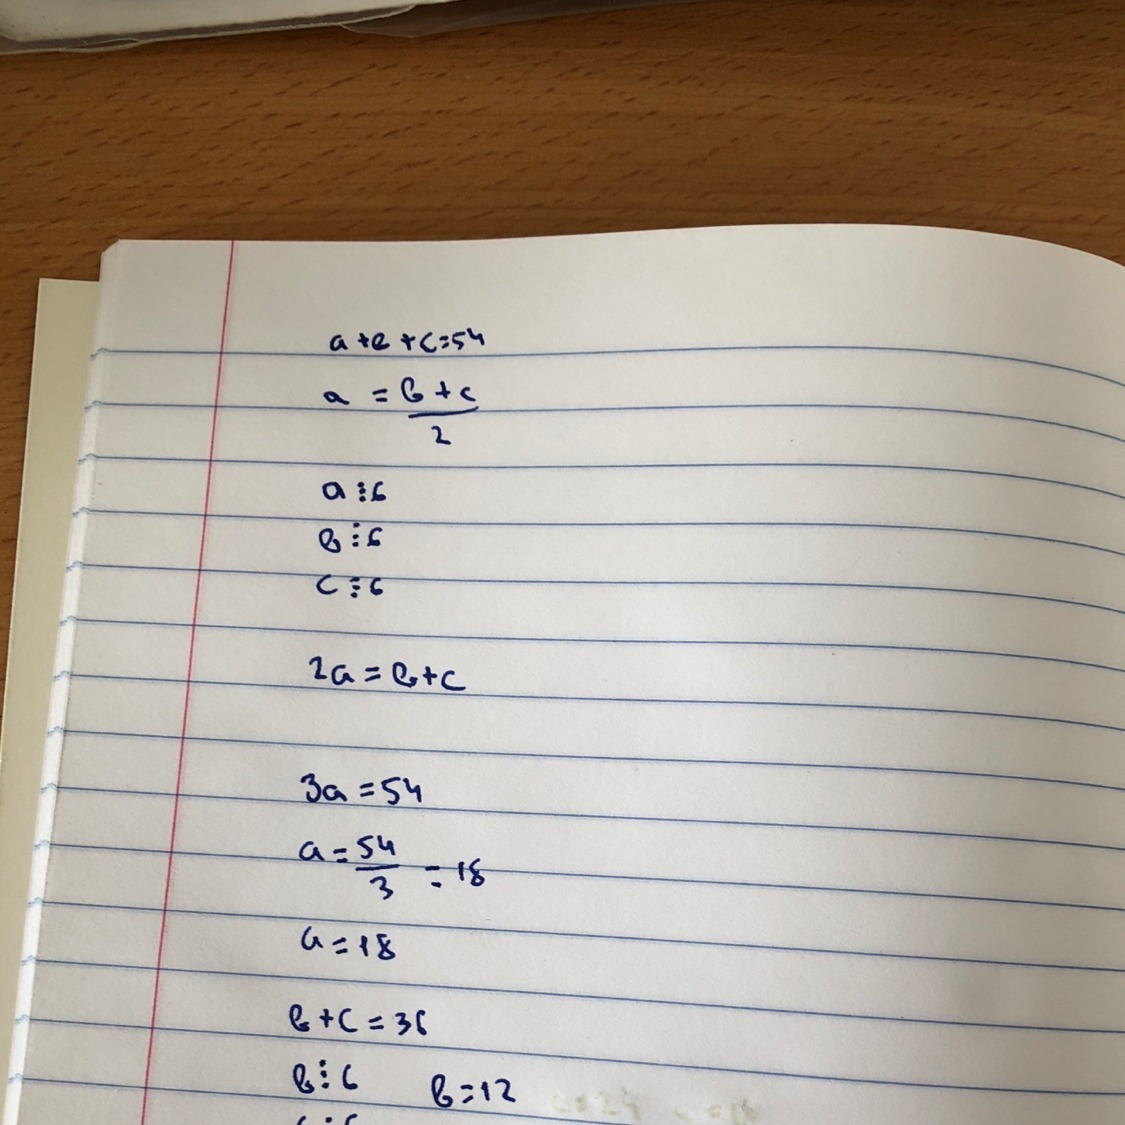 a + в + c = 54
a = в + c
2
a ⋮ 6
в ⋮ 6
c ⋮ 6
2a = в + c
3a = 54
a = 54 = 18
3
a = 18
в + c = 36
в ⋮ 6 в = 12